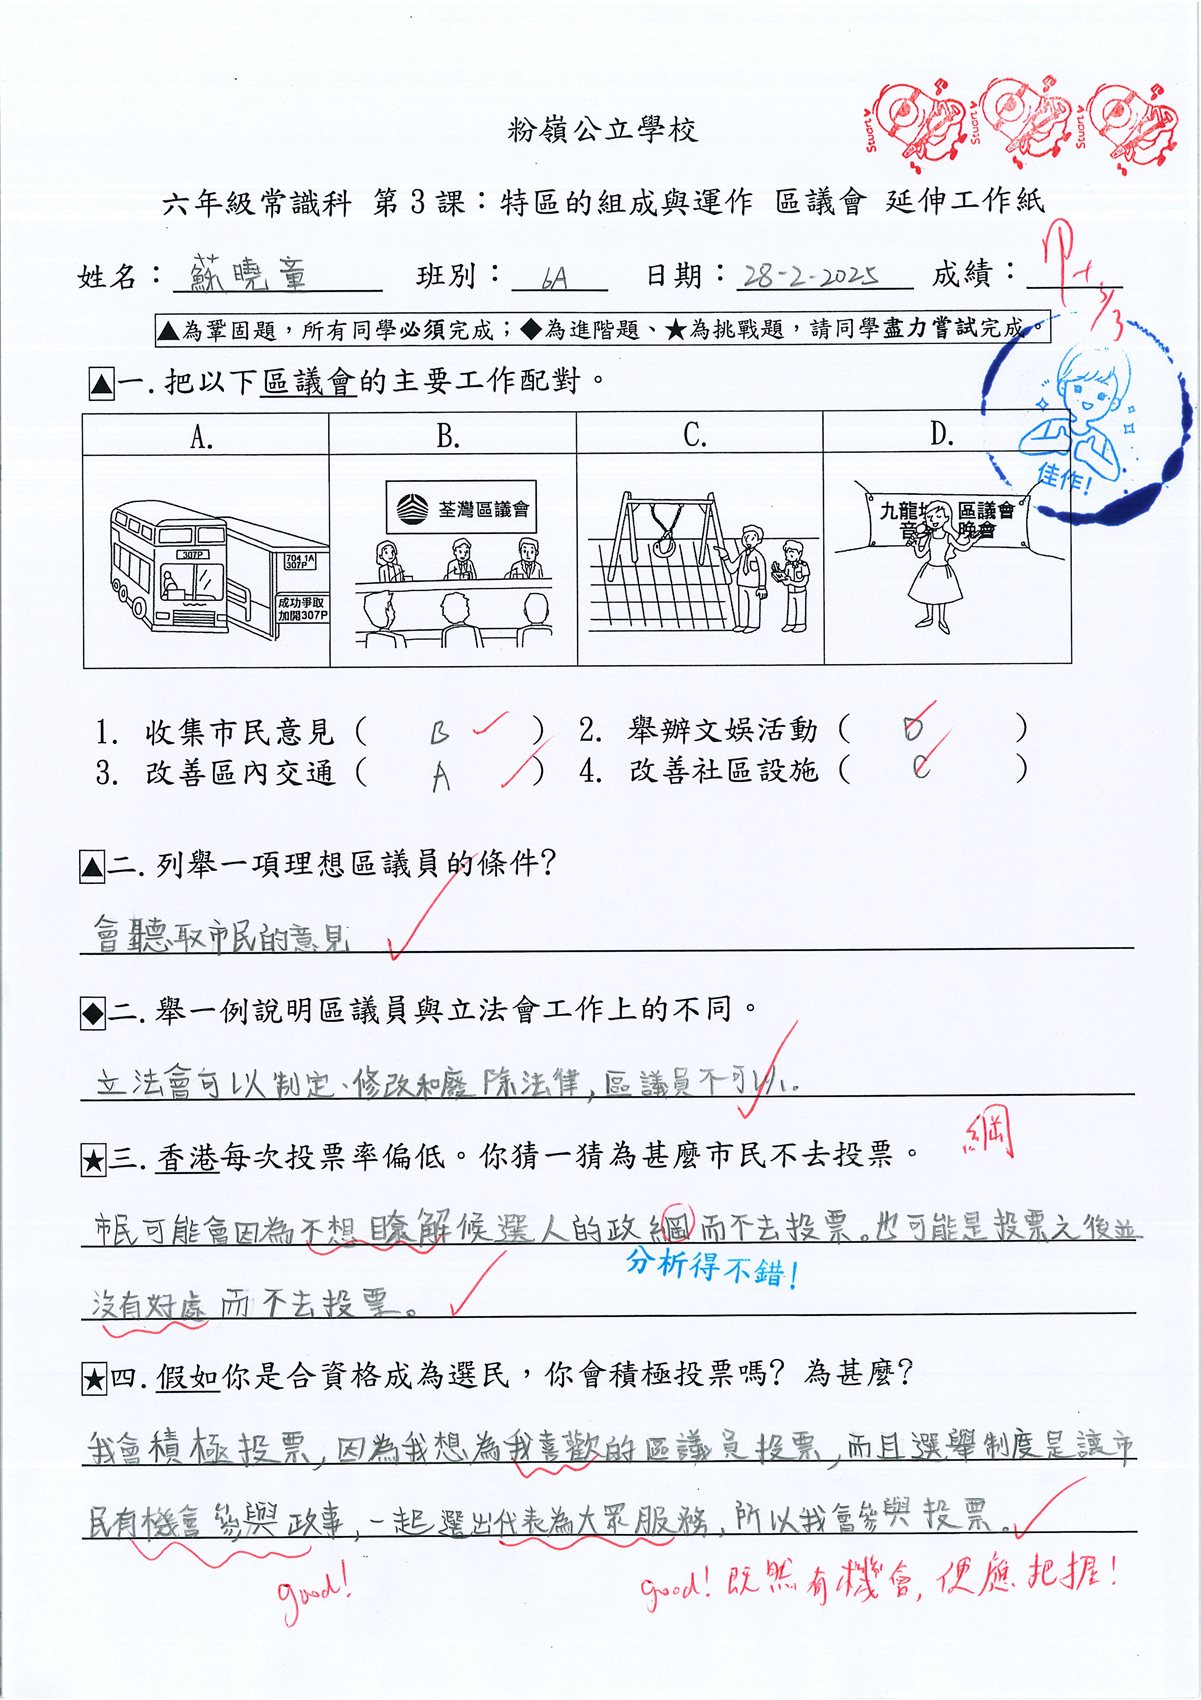 Stuart
Stuart
Stuart
粉嶺公立學校
六年級常識科 第3課：特區的組成與運作 區議會 延伸工作紙
姓名：蘇曉童 班別：6A 日期：28-2-2025 成績：甲+
3/3
▲為鞏固題，所有同學必須完成；◆為進階題、★為挑戰題，請同學盡力嘗試完成。
▲一.把以下區議會的主要工作配對。
佳作!
A. B. C. D.
307P
704.1A
307P
成功爭取
加開307P
荃灣區議會
九龍城 區議會
音 晚會
1. 收集市民意見（ B ） 2. 舉辦文娛活動（ D ）
3. 改善區內交通（ A ） 4. 改善社區設施（ C ）
▲二.列舉一項理想區議員的條件?
會聽取市民的意見
◆二.舉一例說明區議員與立法會工作上的不同。
立法會可以制定、修改和廢除法律,區議員不可以.
★三.香港每次投票率偏低。你猜一猜為甚麼市民不去投票。
綱
市民可能會因為不想瞭解候選人的政綱而不去投票。也可能是投票之後並
分析得不錯!
沒有好處而不去投票。
★四.假如你是合資格成為選民，你會積極投票嗎? 為甚麼?
我會積極投票,因為我想為我喜歡的區議員投票,而且選舉制度是讓市
民有機會參與政事,一起選出代表為大眾服務,所以我會參與投票。
good!
good! 既然有機會,便應把握!